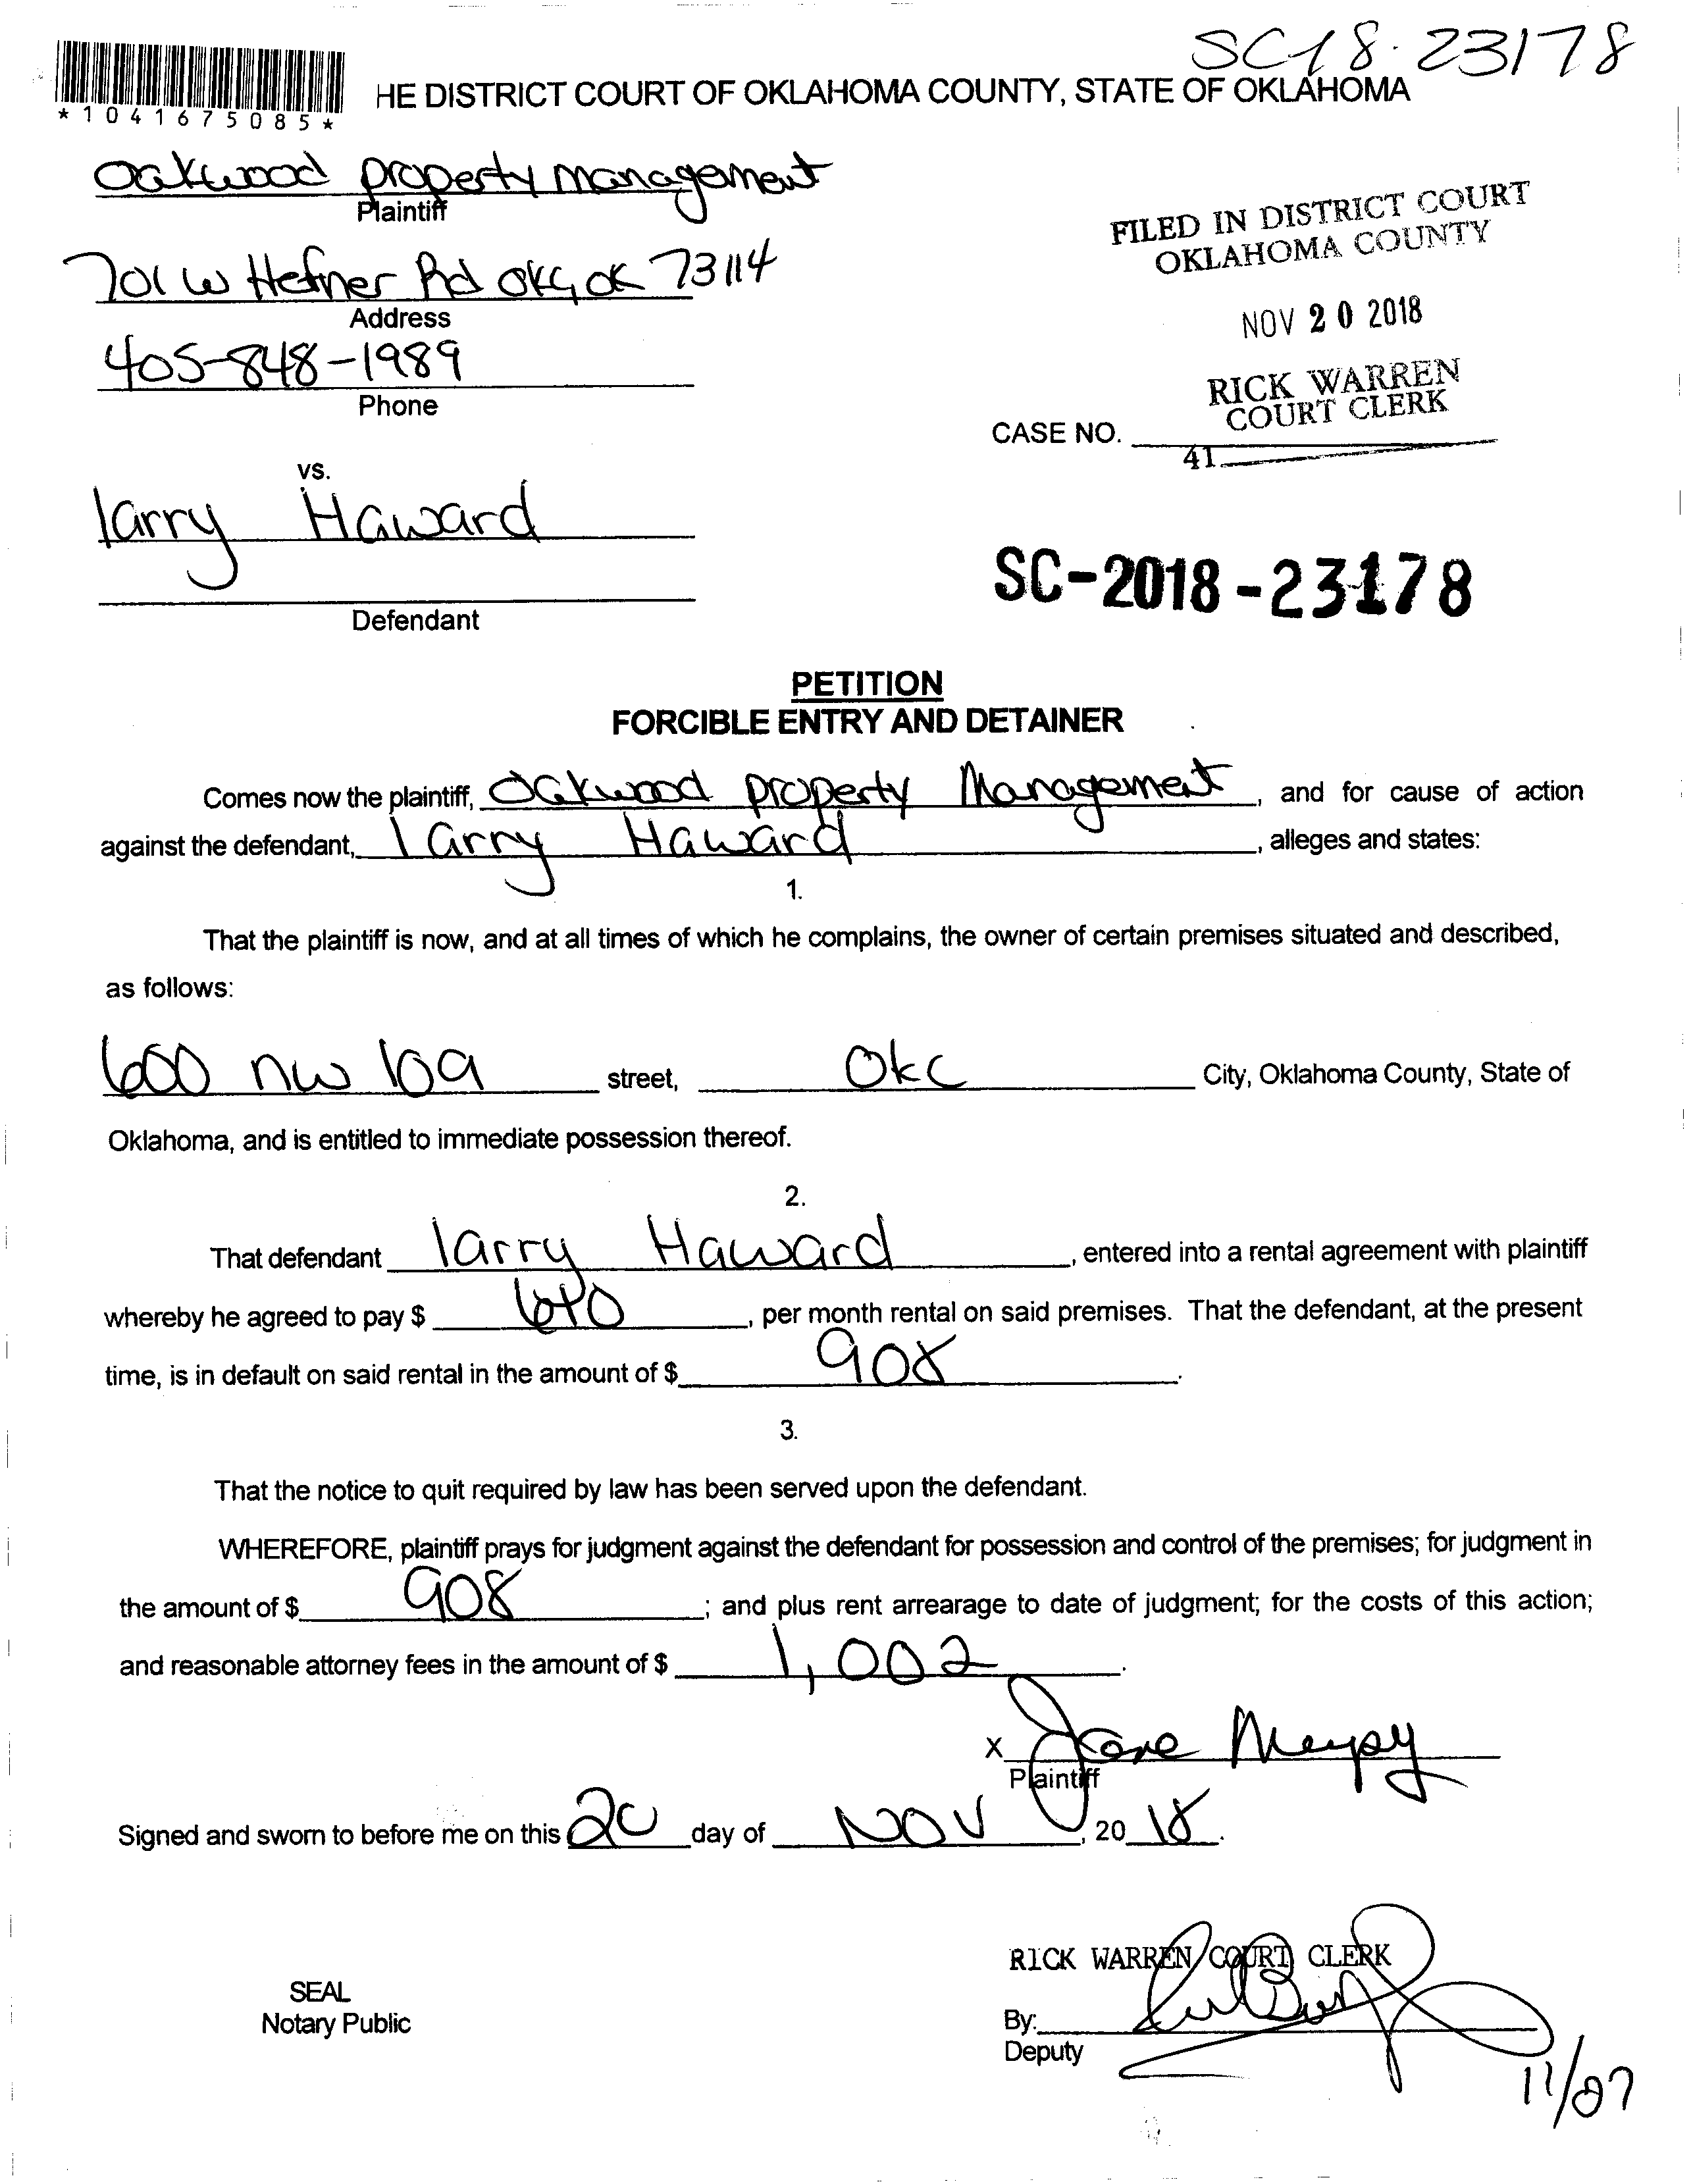 SC18-23178
*1041675085*
HE DISTRICT COURT OF OKLAHOMA COUNTY, STATE OF OKLAHOMA
Oakwood property management
Plaintiff
701 W Hefner Rd OKC, OK 73114
Address
405-848-1989
Phone
FILED IN DISTRICT COURT
OKLAHOMA COUNTY
NOV 20 2018
RICK WARREN
COURT CLERK
CASE NO.
41
vs.
larry Haward
Defendant
SC-2018-23178
PETITION
FORCIBLE ENTRY AND DETAINER
Comes now the plaintiff, Oakwood property Management, and for cause of action
against the defendant, larry Haward, alleges and states:
1.
That the plaintiff is now, and at all times of which he complains, the owner of certain premises situated and described,
as follows:
600 nw 109 street, OKC City, Oklahoma County, State of
Oklahoma, and is entitled to immediate possession thereof.
2.
That defendant larry Haward, entered into a rental agreement with plaintiff
whereby he agreed to pay $, per month rental on said premises. That the defendant, at the present
time, is in default on said rental in the amount of $ 908.
3.
That the notice to quit required by law has been served upon the defendant.
WHEREFORE, plaintiff prays for judgment against the defendant for possession and control of the premises; for judgment in
the amount of $ 908; and plus rent arrearage to date of judgment; for the costs of this action;
and reasonable attorney fees in the amount of $ 1,002.
X
Plaintiff
Signed and sworn to before me on this 20 day of NOV, 20 18.
RICK WARREN COURT CLERK
SEAL
Notary Public
By:
Deputy
11/27